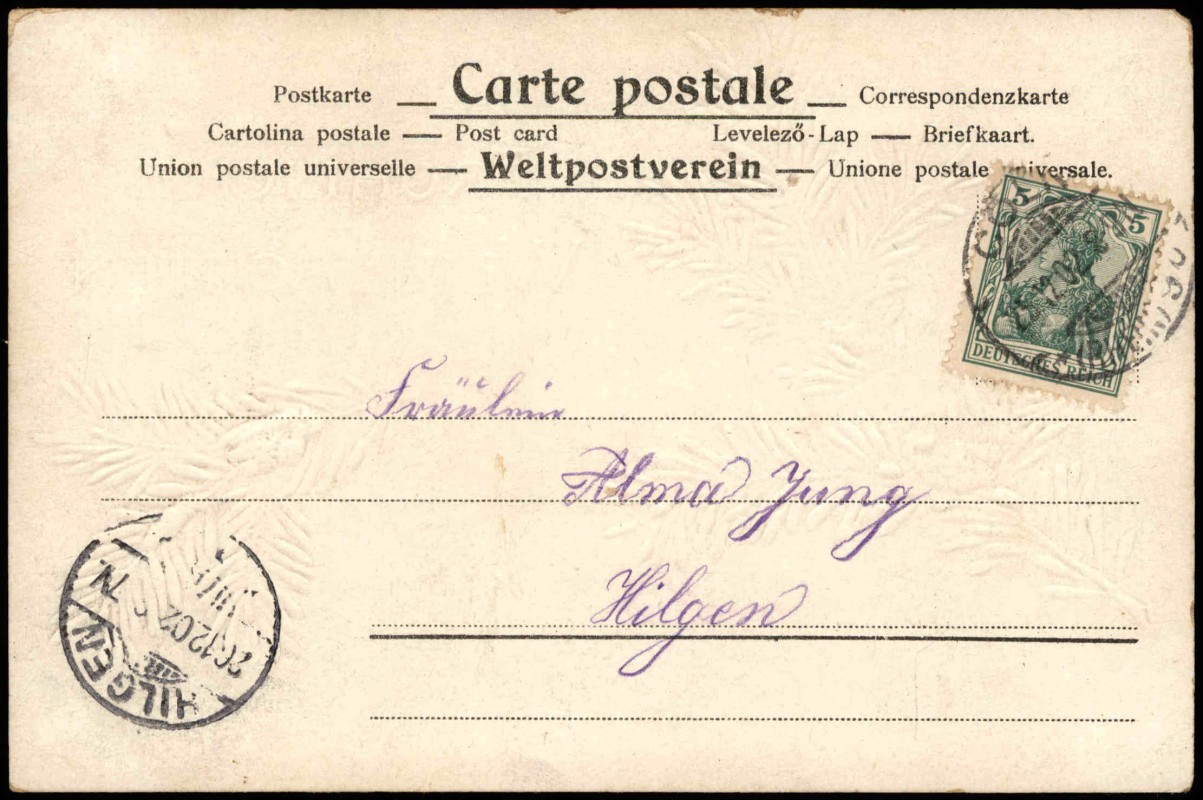 Carte postale
Postkarte — — Correspondenzkarte
Cartolina postale — Post card Levelező-Lap — Briefkaart.
Union postale universelle — Weltpostverein — Unione postale universale.
5 5
25.12.02
DEUTSCHES REICH
Fräulein
Alma Jung
Hilgen
26.12.02
HILGEN